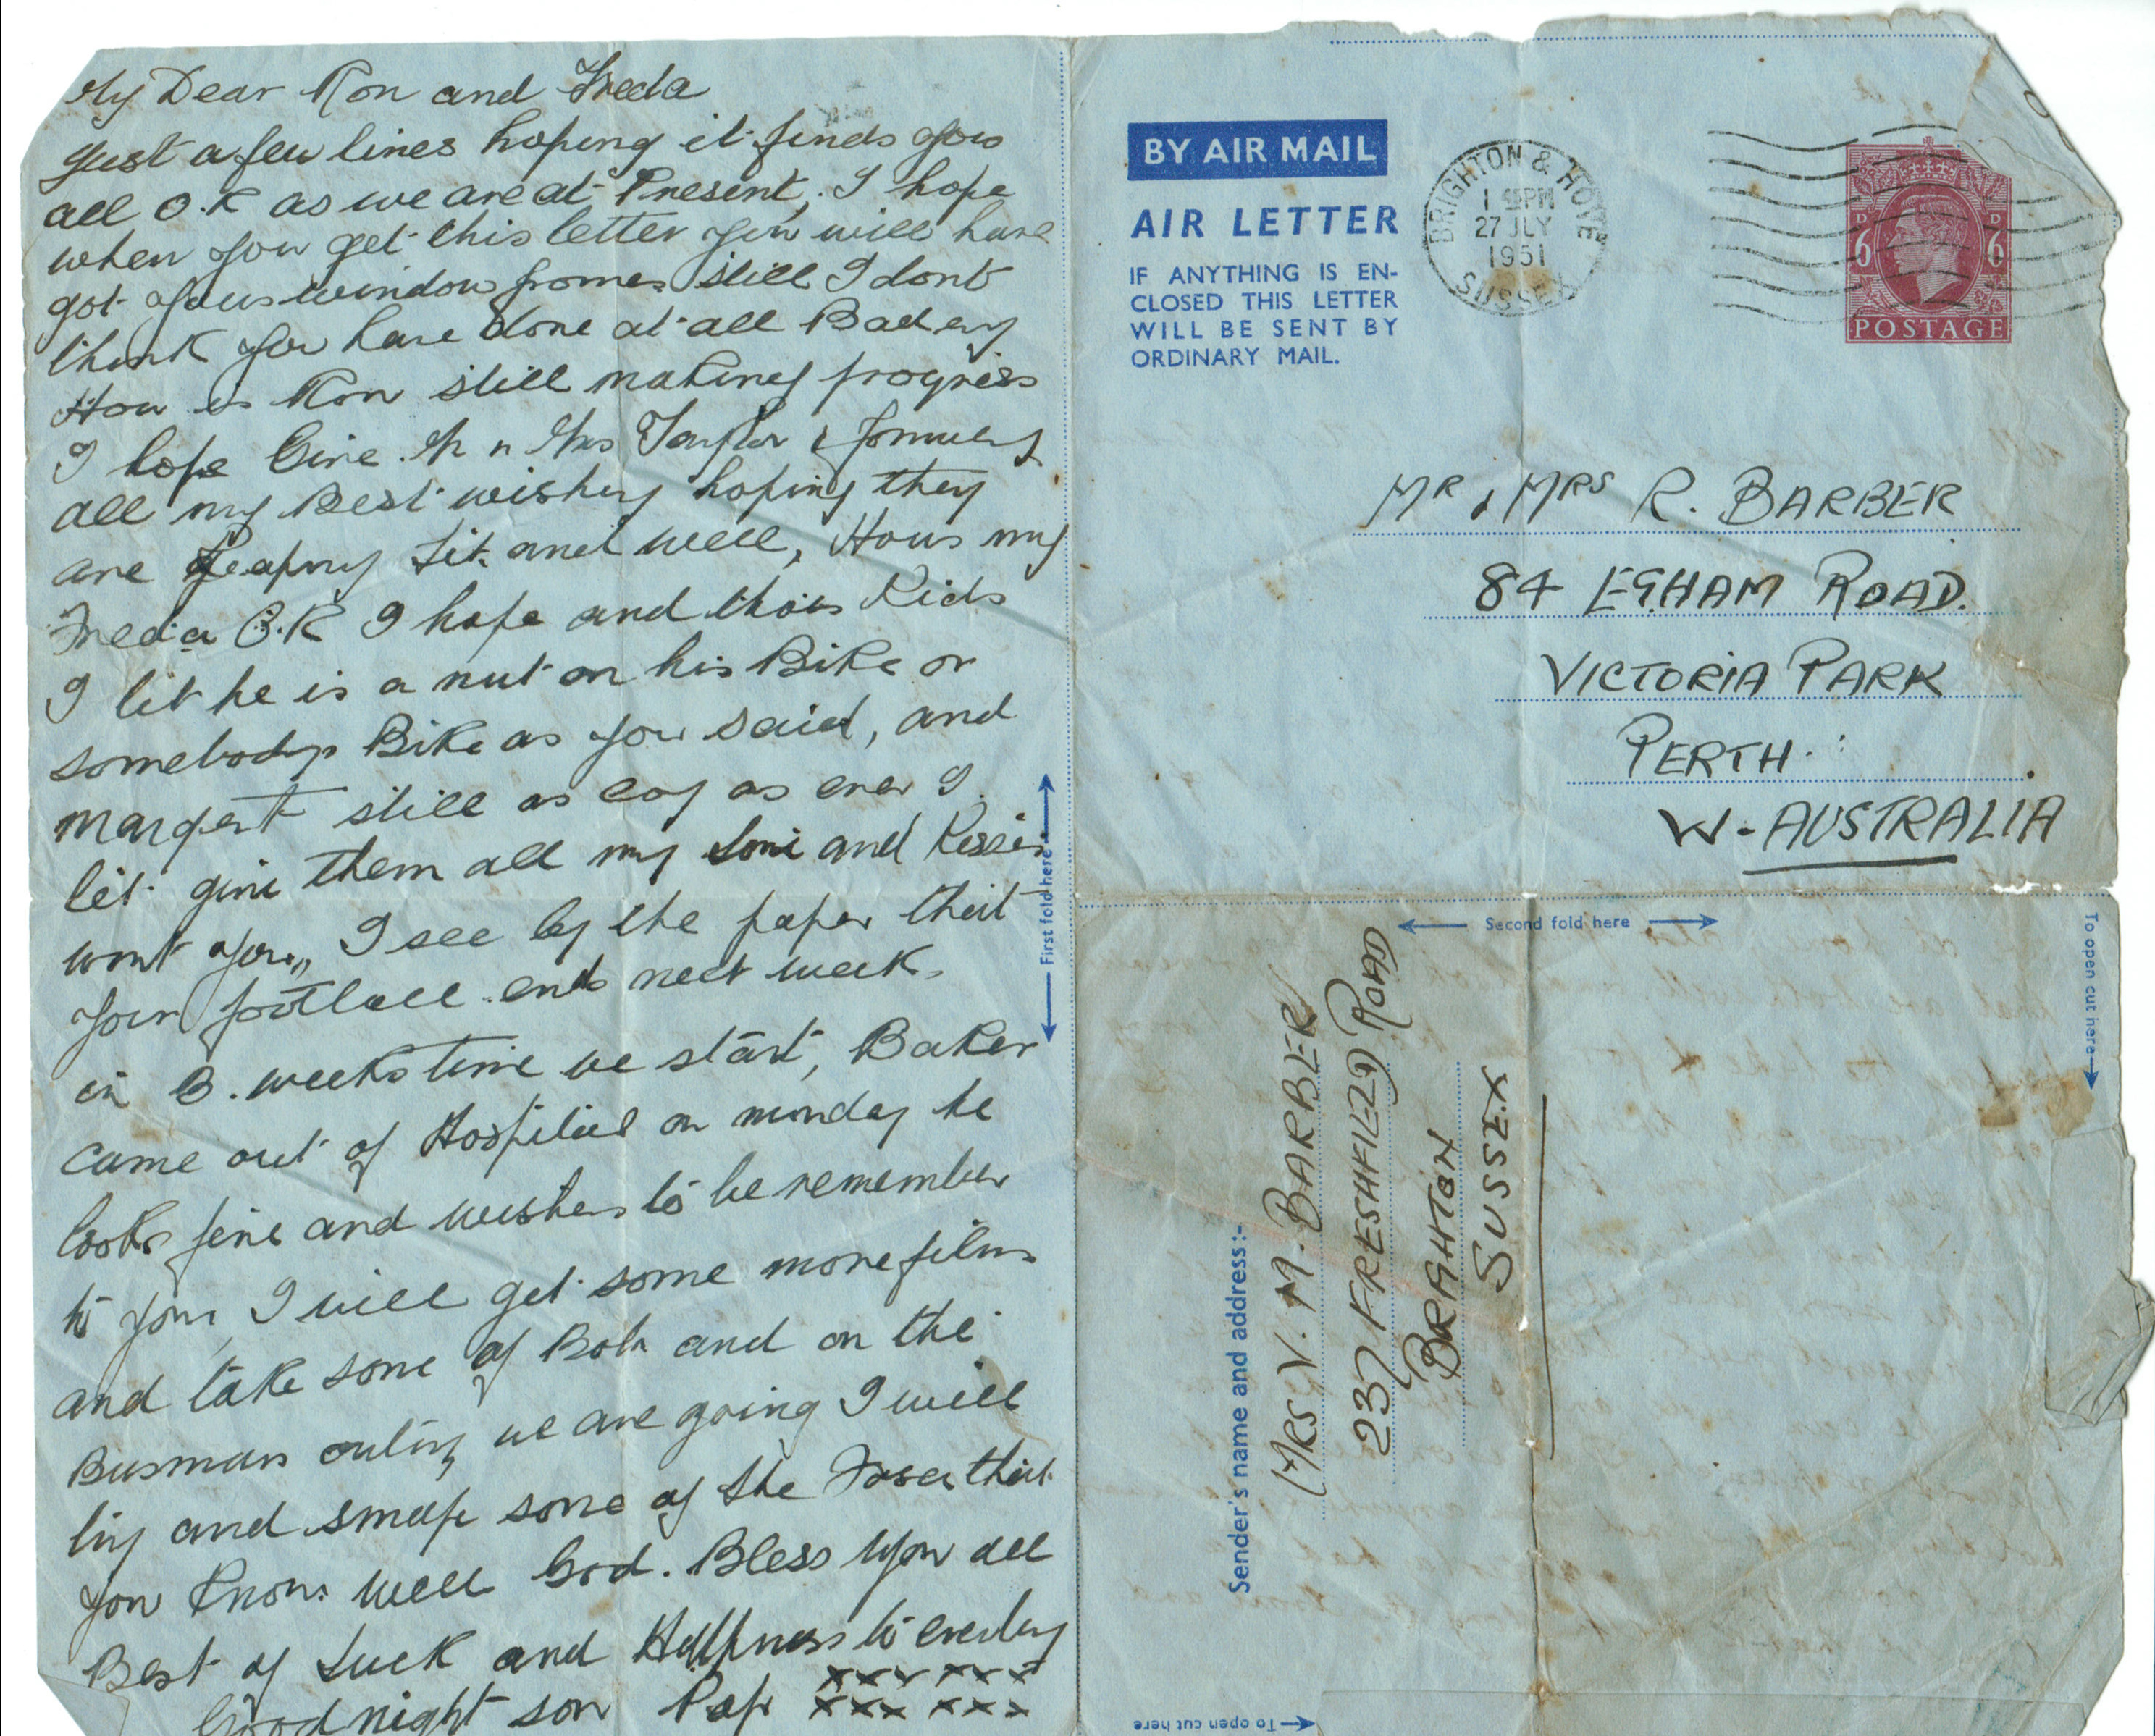 My Dear Ron and Freda
Just a few lines hoping it finds you
all O.K as we are at Present, I hope
when you get this letter you will have
got your window frames still I dont
think you have done at all Badey
How is Ron still making progress
I hope Give Mr n Mrs Taylor & formuley
all my Best wishes hoping they
are Keaping fit and well, Hows my
Freda O.K I hope and thois Kids
I bet he is a nut on his Bike or
somebodys Bike as you said, and
Margert still as coy as ever I
bet give them all my Love and Kisses
wont you,, I see by the paper that
your football ends next week
in 3. weeks time we start, Baker
came out of Hospital on monday he
looks fine and wishes to be remember
to you, I will get some more films
and take some of Bob and on the
Busmans outing we are going I will
try and snap some of the Faces that
you know. well God. Bless you all
Best of Luck and Happness to everbey
Goodnight son Pop xxx xxx
xxx xxx
First fold here
BY AIR MAIL
AIR LETTER
IF ANYTHING IS EN-
CLOSED THIS LETTER
WILL BE SENT BY
ORDINARY MAIL.
BRIGHTON & HOVE
1 45PM
27 JLY
1951
SUSSEX
D 6 D 6
POSTAGE
MR & MRS R. BARBER
84 EGHAM ROAD.
VICTORIA PARK
PERTH.
W-AUSTRALIA
Second fold here
To open cut here
Sender's name and address:-
MRS V. M. BARBER
237 FRESHFIELD ROAD
BRIGHTON
SUSSEX
To open cut here